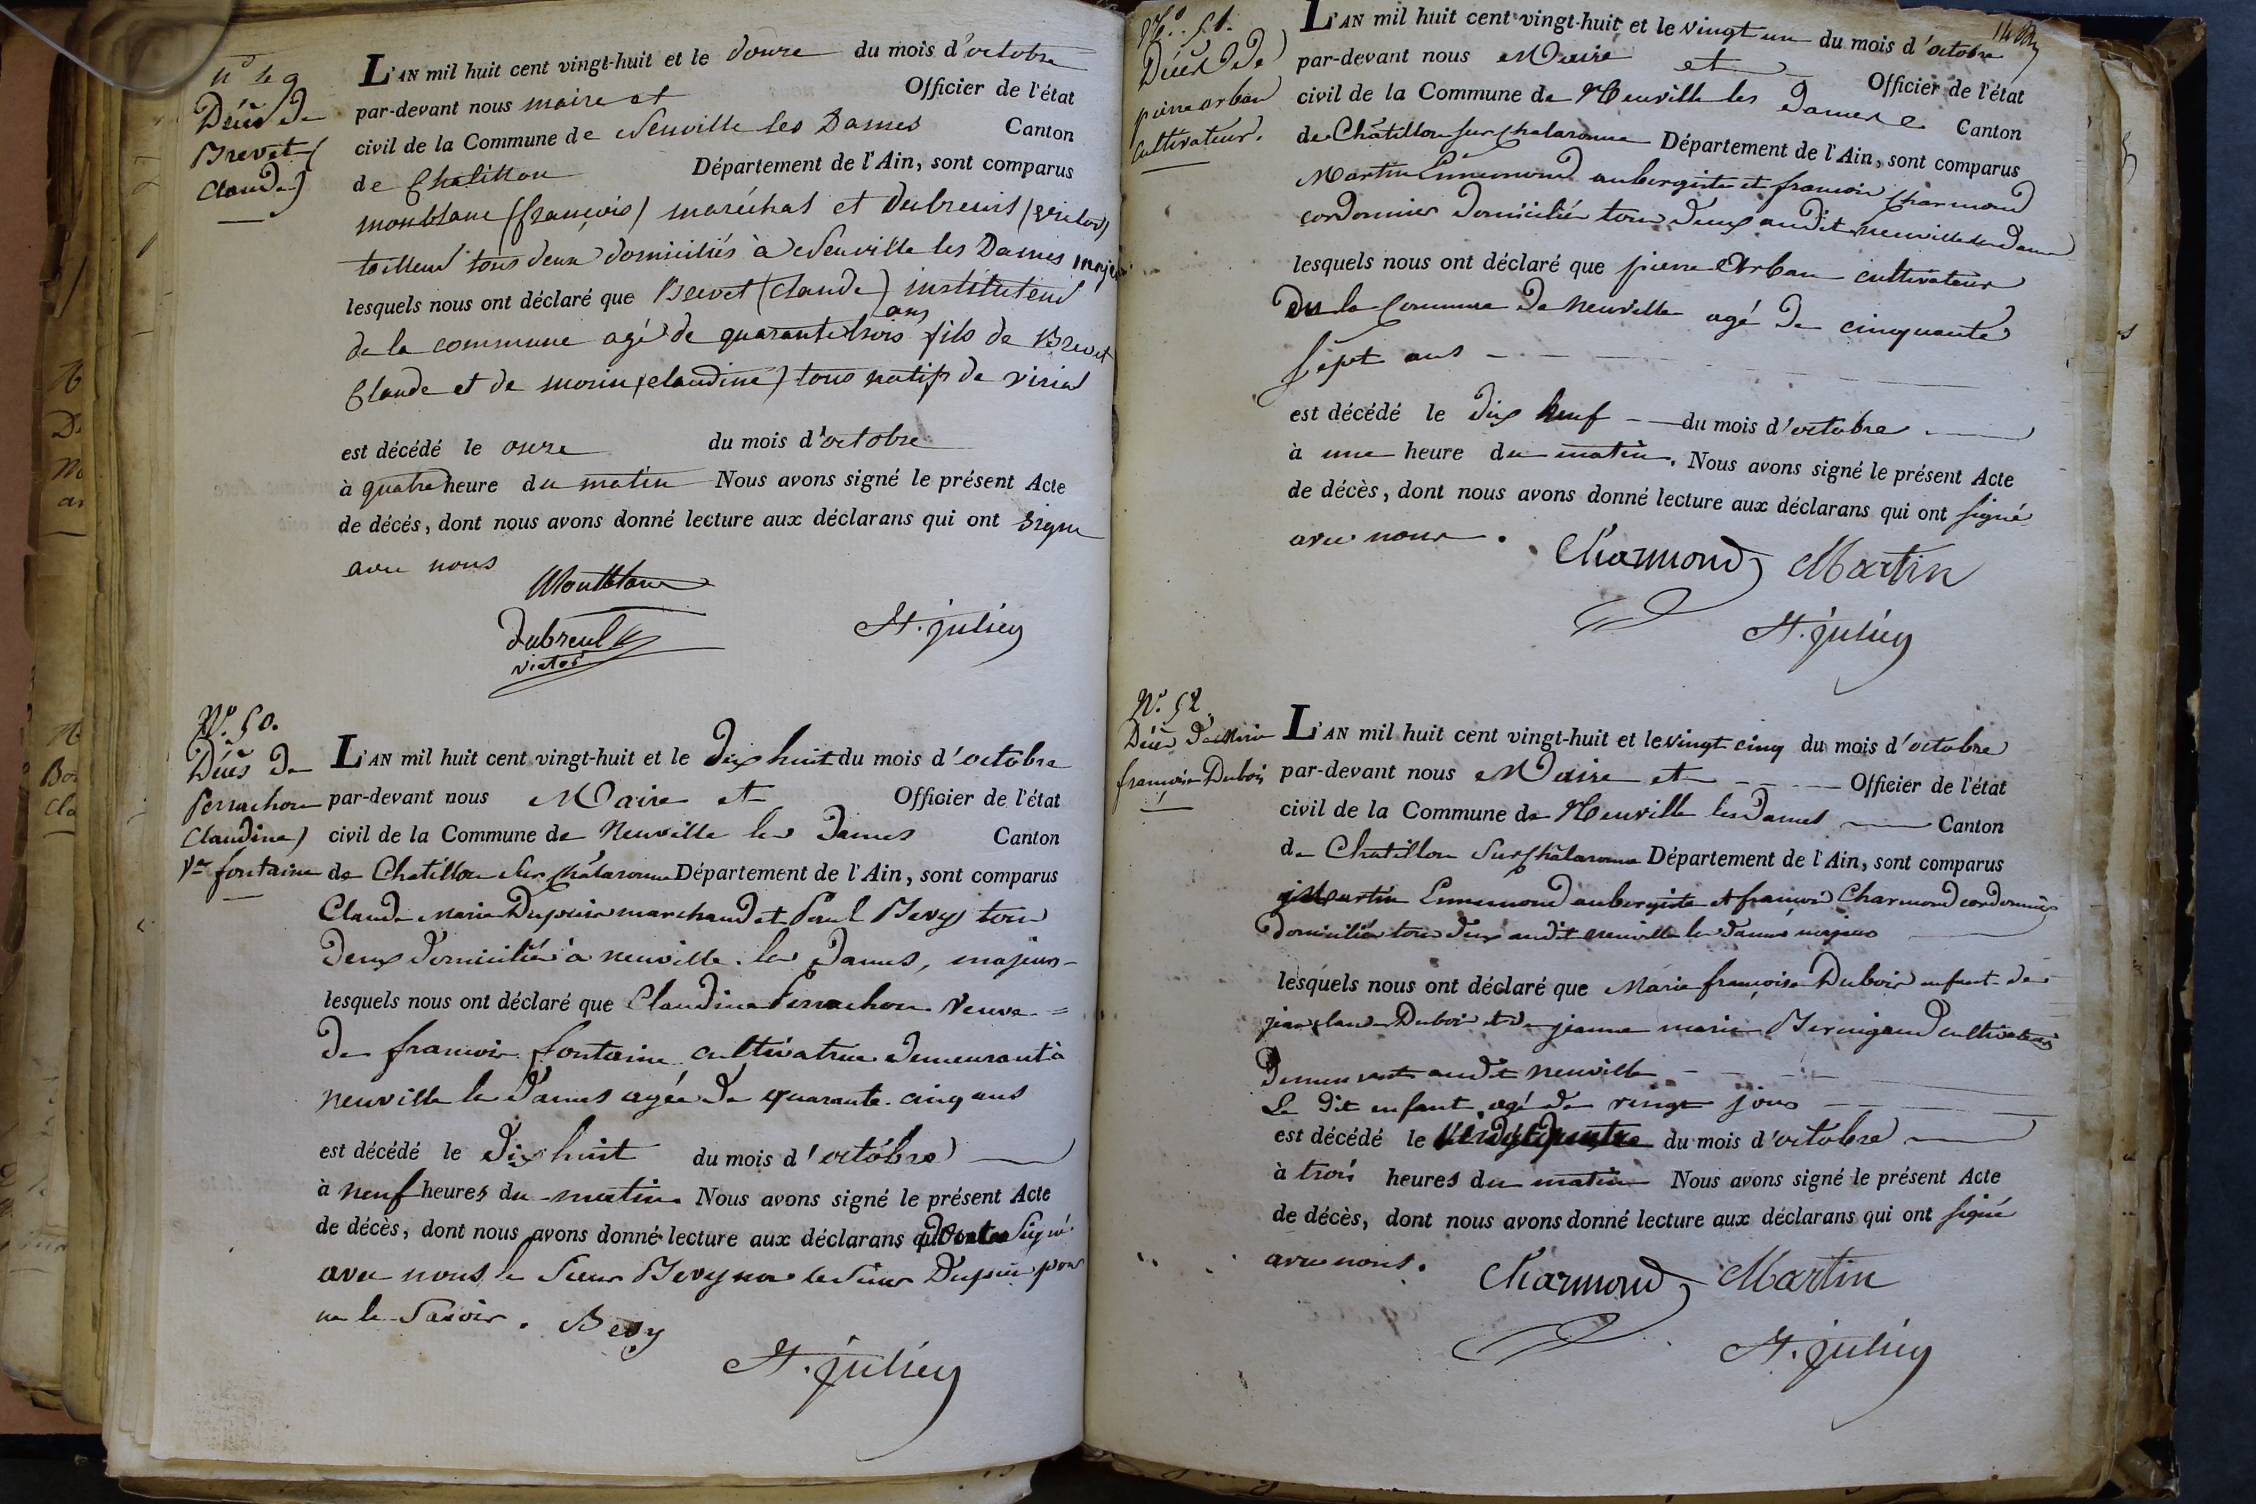 n° 49
Décès de
Brevet (
Claude)
L'AN mil huit cent vingt-huit et le douze du mois d'octobre
par-devant nous maire et Officier de l'état
civil de la Commune de Neuville les Dames Canton
de Chatillon Département de l'Ain, sont comparus
montblanc (françois) maréchal et Dubreuil (victor)
tailleur tous deux domiciliés à Neuville les Dames majeurs
lesquels nous ont déclaré que Brevet (Claude) instituteur
de la commune agé de quarante trois ans fils de Brevet
Claude et de morin (claudine) tous natifs de viriat
est décédé le onze du mois d'octobre
à quatre heure du matin Nous avons signé le présent Acte
de décés, dont nous avons donné lecture aux déclarans qui ont signé
avec nous
Montblanc
Dubreul
victor
St. julien
N°. 50.
Décès de
Perrachon
Claudine)
Ve fontaine
L'AN mil huit cent vingt-huit et le dix huit du mois d'octobre
par-devant nous Maire et Officier de l'état
civil de la Commune de Neuville les Dames Canton
de Chatillon sur Chalaronne Département de l'Ain, sont comparus
Claude Marie Dupuis marchand et Paul Bevy tous
deux domiciliés à neuville les Dames, majeurs
lesquels nous ont déclaré que Claudine Perrachon veuve
de francois fontaine cultivatrice demeurant à
neuville les Dames agée de quarante cinq ans
est décédé le dix huit du mois d'octobre
à neuf heures du matin Nous avons signé le présent Acte
de décès, dont nous avons donné lecture aux déclarans signé
avec nous le sieur Bevy non le sieur Dupuis pour
ne le savoir. Bevy
St. julien
N°. 51.
Décès de
pierre arban
cultivateur.
L'AN mil huit cent vingt-huit et le vingt un du mois d'octobre
par-devant nous Maire et Officier de l'état
civil de la Commune de Neuville les Dames Canton
de Châtillon sur Chalaronne Département de l'Ain, sont comparus
Martin Ennemond aubergiste et francois Charmond
cordonnier domiciliés tous deux audit neuville les Dames
lesquels nous ont déclaré que pierre Arban cultivateur
de la Commune de Neuville agé de cinquante
sept ans
est décédé le dix neuf du mois d'octobre
à une heure du matin. Nous avons signé le présent Acte
de décès, dont nous avons donné lecture aux déclarans qui ont signé
avec nous.
Charmond Martin
St. julien
N°. 52.
Décès de Marie
françoise Dubois
L'AN mil huit cent vingt-huit et le vingt cinq du mois d'octobre
par-devant nous Maire et Officier de l'état
civil de la Commune de Neuville les Dames Canton
de Chatillon sur Chalaronne Département de l'Ain, sont comparus
Martin Ennemond aubergiste et françois Charmond cordonnier
domiciliés tous deux audit Neuville les Dames majeurs
lesquels nous ont déclaré que Marie françoise Dubois enfant de
jean claude Dubois et de jeanne marie Bernigaud cultivateurs
Demeurants audit neuville
Le dit enfant agé de vingt jours
est décédé le vingt quatre du mois d'octobre
à trois heures du matin Nous avons signé le présent Acte
de décès, dont nous avons donné lecture aux déclarans qui ont signé
avec nous.
Charmond Martin
St. julien